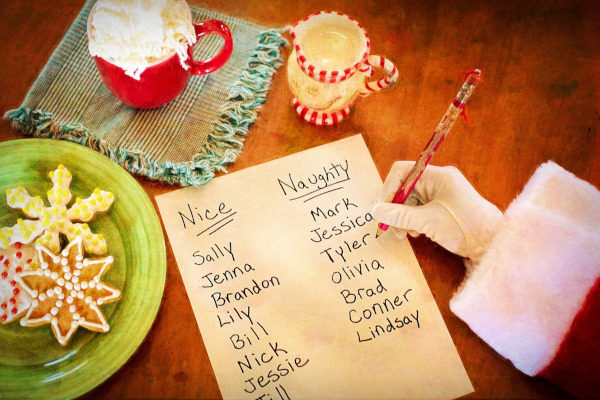 Nice
Sally
Jenna
Brandon
Lily
Bill
Nick
Jessie
Naughty
Mark
Jessica
Tyler
Olivia
Brad
Conner
Lindsay